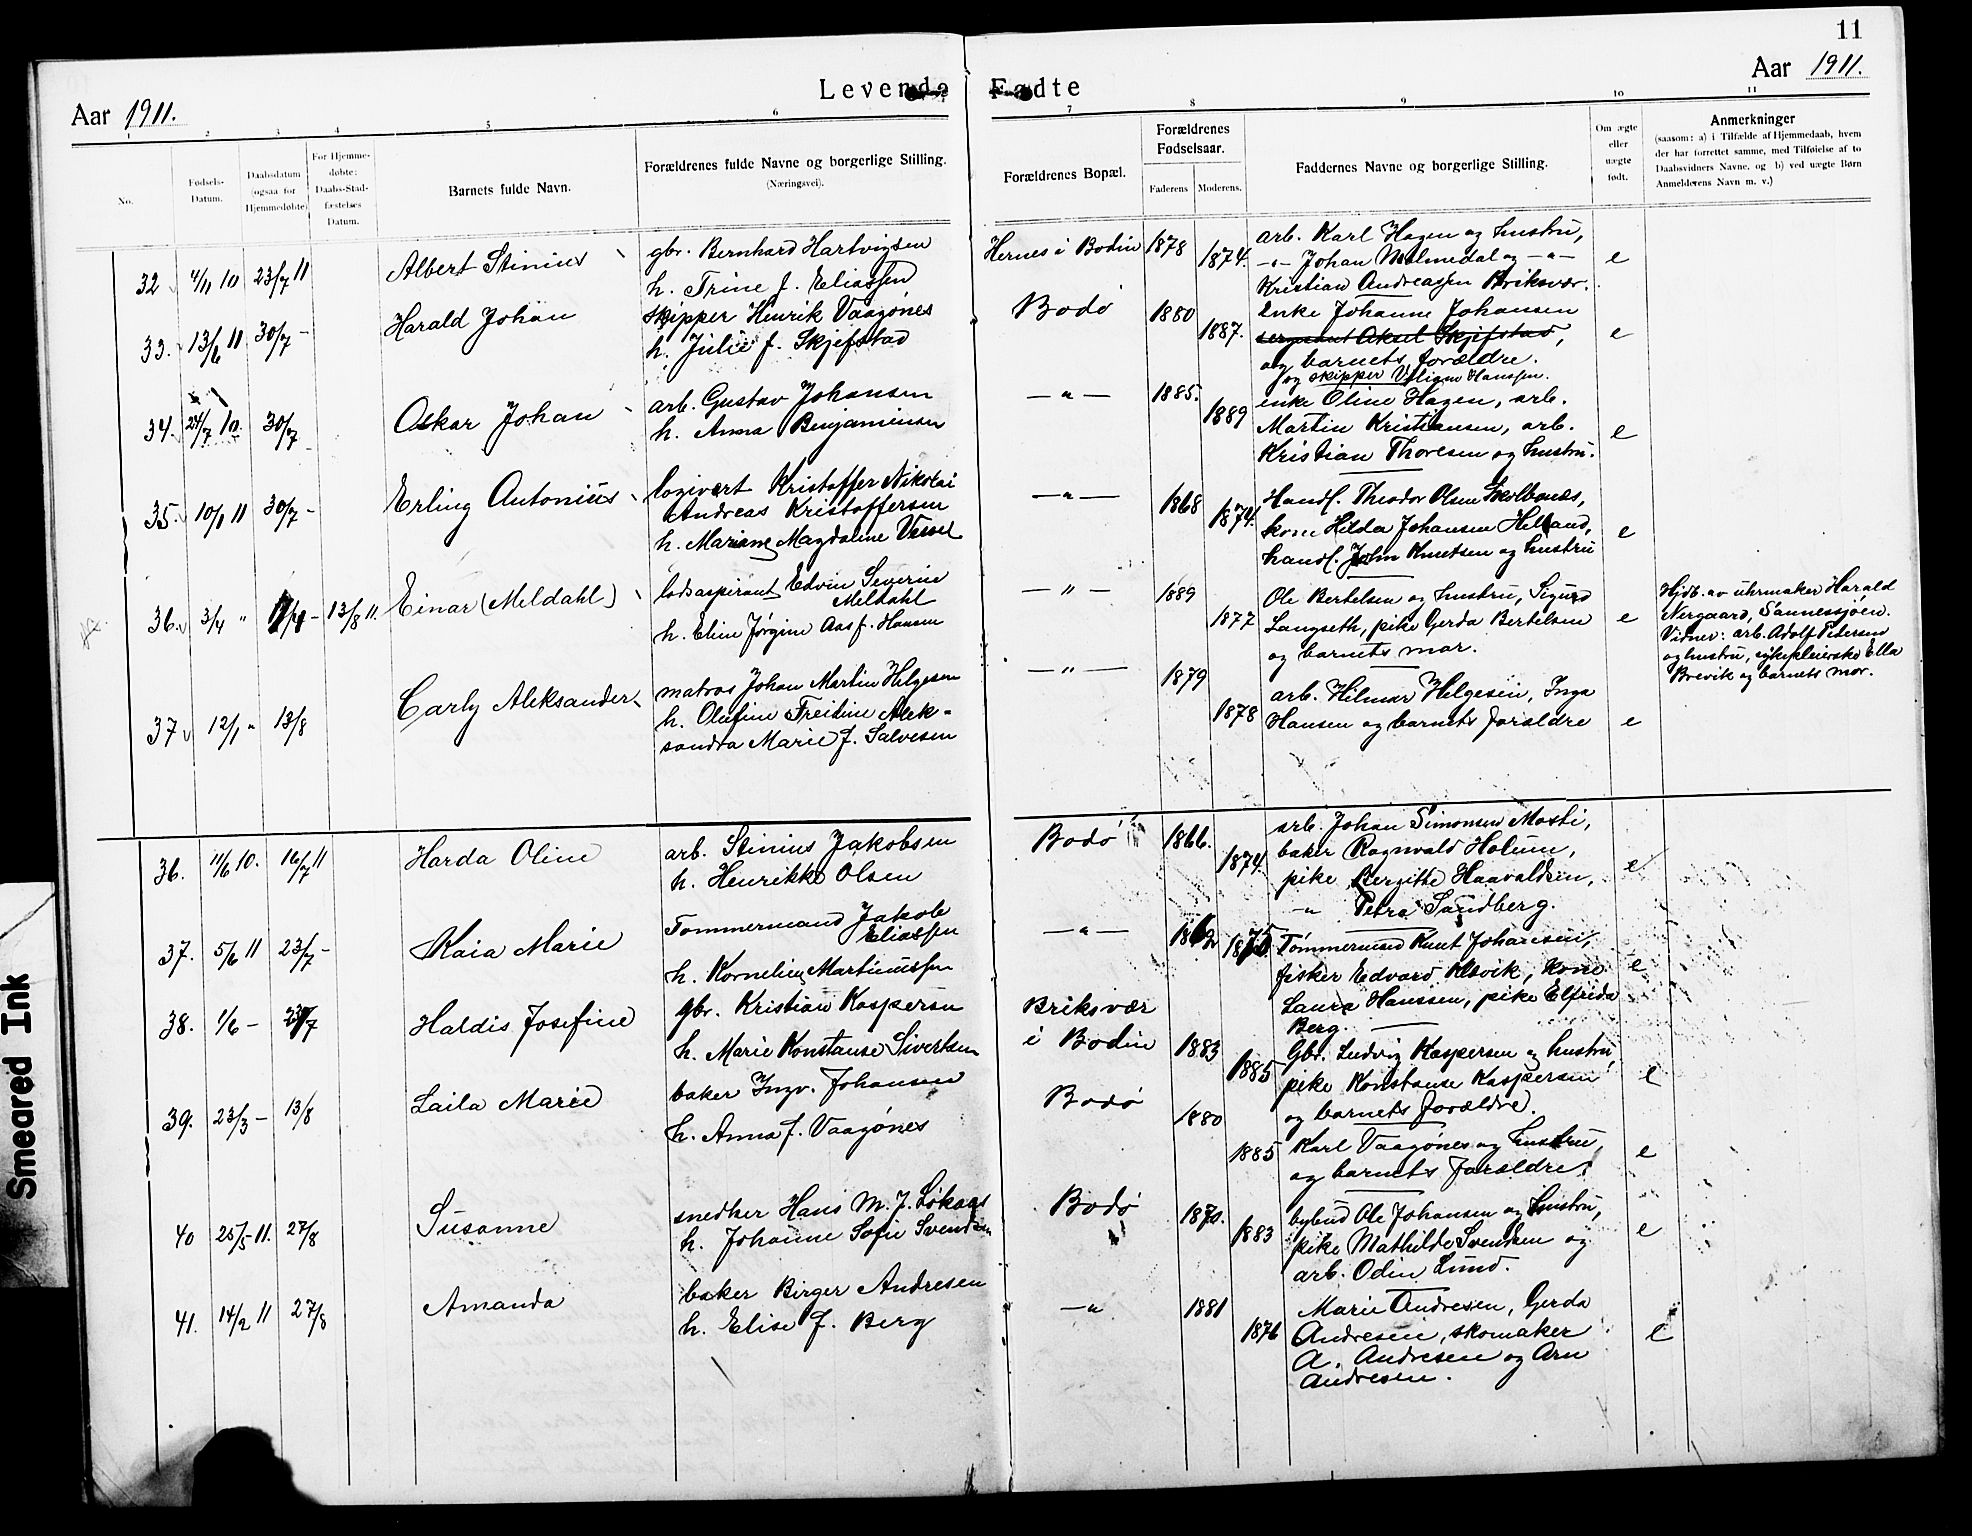 11
Levende Fødte
Aar 1911.
Aar 1911.
1 2 3 4 5 6 7 8 9 10 11
No.
Fødsels-
Datum.
Daabsdatum
(ogsaa for
Hjemmedøbte)
For Hjemme-
døbte:
Daabs-Stad-
fæstelses
Datum.
Barnets fulde Navn.
Forældrenes fulde Navne og borgerlige Stilling.
(Næringsvei).
Forældrenes Bopæl.
Forældrenes
Fødselsaar.
Faderens
Moderens.
Faddernes Navne og borgerlige Stilling.
Om ægte
eller
uægte
født.
Anmerkninger
(saasom: a) i Tilfælde af Hjemmedaab, hvem
der har forrettet samme, med Tilføielse af to
Daabsvidners Navne, og b) ved uægte Børn
Anmelderens Navn m. v.)
32 4/11 10 23/7 11 Albert Stinius
gbr. Bernhard Hartvigsen
h. Trine f. Eliassen
Hernes i Bodin 1878 1874.
arb. Karl Hagen og hustru,
-"- Johan Malmedal og -"-
Kristian Andreassen Briksvær.
e
33. 13/6 11 30/7 - Harald Johan
Skipper Henrik Vaagønes
h. Julie f. Skjefstad
Bodø 1880 1887.
Enke Johanne Johansen
sergeant Aksel Skjefstad,
og barnets forældre.
og skipper Hanssen.
e
34. 24/7 10. 30/7 - Oskar Johan
arb. Gustav Johansen
h. Anna Benjaminsen
-"- 1885. 1889
enke Oline Hagen, arb.
Martin Kristiansen, arb.
Kristian Thoresen og hustru.
e
35. 10/1 11 30/7 - Erling Antonius
logivert Kristoffer Nikolai
Andreas Kristoffersen
h. Mariane Magdaline
-"- 1868 1874.
Handl. Theodor Olsen
kone Hilda Johansen
handl. John Knutsen og hustru
e
36. 3/4 " 13/8 11. Einar (Meldahl)
lodsaspirant Edvin Severin
Meldahl
h. Eline Jørgine Aas f. Hansen
-"- 1889 1877
Ole Bertelsen og hustru, Sigurd
Langseth, pike Gerda Bertelsen
og barnets mor.
e
Hjdb. av uhrmaker Harald
Nergaard, Sannessjøen.
Vidner: arb. Adolf Pedersen
og hustru, sykepleierske Ella
Brevik og barnets mor.
37 12/1 " 13/8 Carly Aleksander
matros Johan Martin Helgesen
h. Olufine Alek-
sandra Marie f. Salvesen
-"- 1879 1878
arb. Hilmar Helgesen, Inga
Hansen og barnets forældre
e
36. 11/6 10. 16/7 11 Harda Oline
arb. Stinius Jakobsen
h. Henrikke Olsen
Bodø 1866. 1874.
arb. Johan Simonsen
baker Ragnvald Holum,
pike Bergitte Haavaldsen,
-"- Petra Sandberg.
e
37. 5/6 11 23/7 - Kaia Marie
Tømmermand Jakob
Eliassen
h. Kornelie Martinussen
-"-
Tømmermand Knut Johansen,
fisker Edvard Kløvik, kone
Laura Hanssen, pike Elfrida
Berg.
e
38. 1/6 - Haldis Josefine
gbr. Kristian Kaspersen
h. Marie Konstanse Sivertsen
Briksvær
i Bodin 1883 1885
Gbr. Ludvig Kaspersen og hustru,
pike Konstanse Kaspersen
og barnets forældre.
e
39. 23/3 - 13/8 Laila Marie
baker Ingv. Johansen
h. Anna f. Vaagønes
Bodø 1880 1885
Karl Vaagønes og hustru,
og barnets forældre.
e
40 25/5 11. 27/8 Susanne
snedker Hans M. J. Løkaas
h. Johanne Sofie Svendsen
Bodø 1870. 1883
bybud Ole Johansen og hustru,
pike Mathilde Svendsen og
arb. Odin Lund.
e
41. 14/2 11 27/8 Amanda
baker Birger Andresen
h. Elise f. Berg
-"- 1881 1876
Marie Andresen, Gerda
Andresen, skomaker
A. Andresen og Arn
Andresen.
e
Smeared Ink